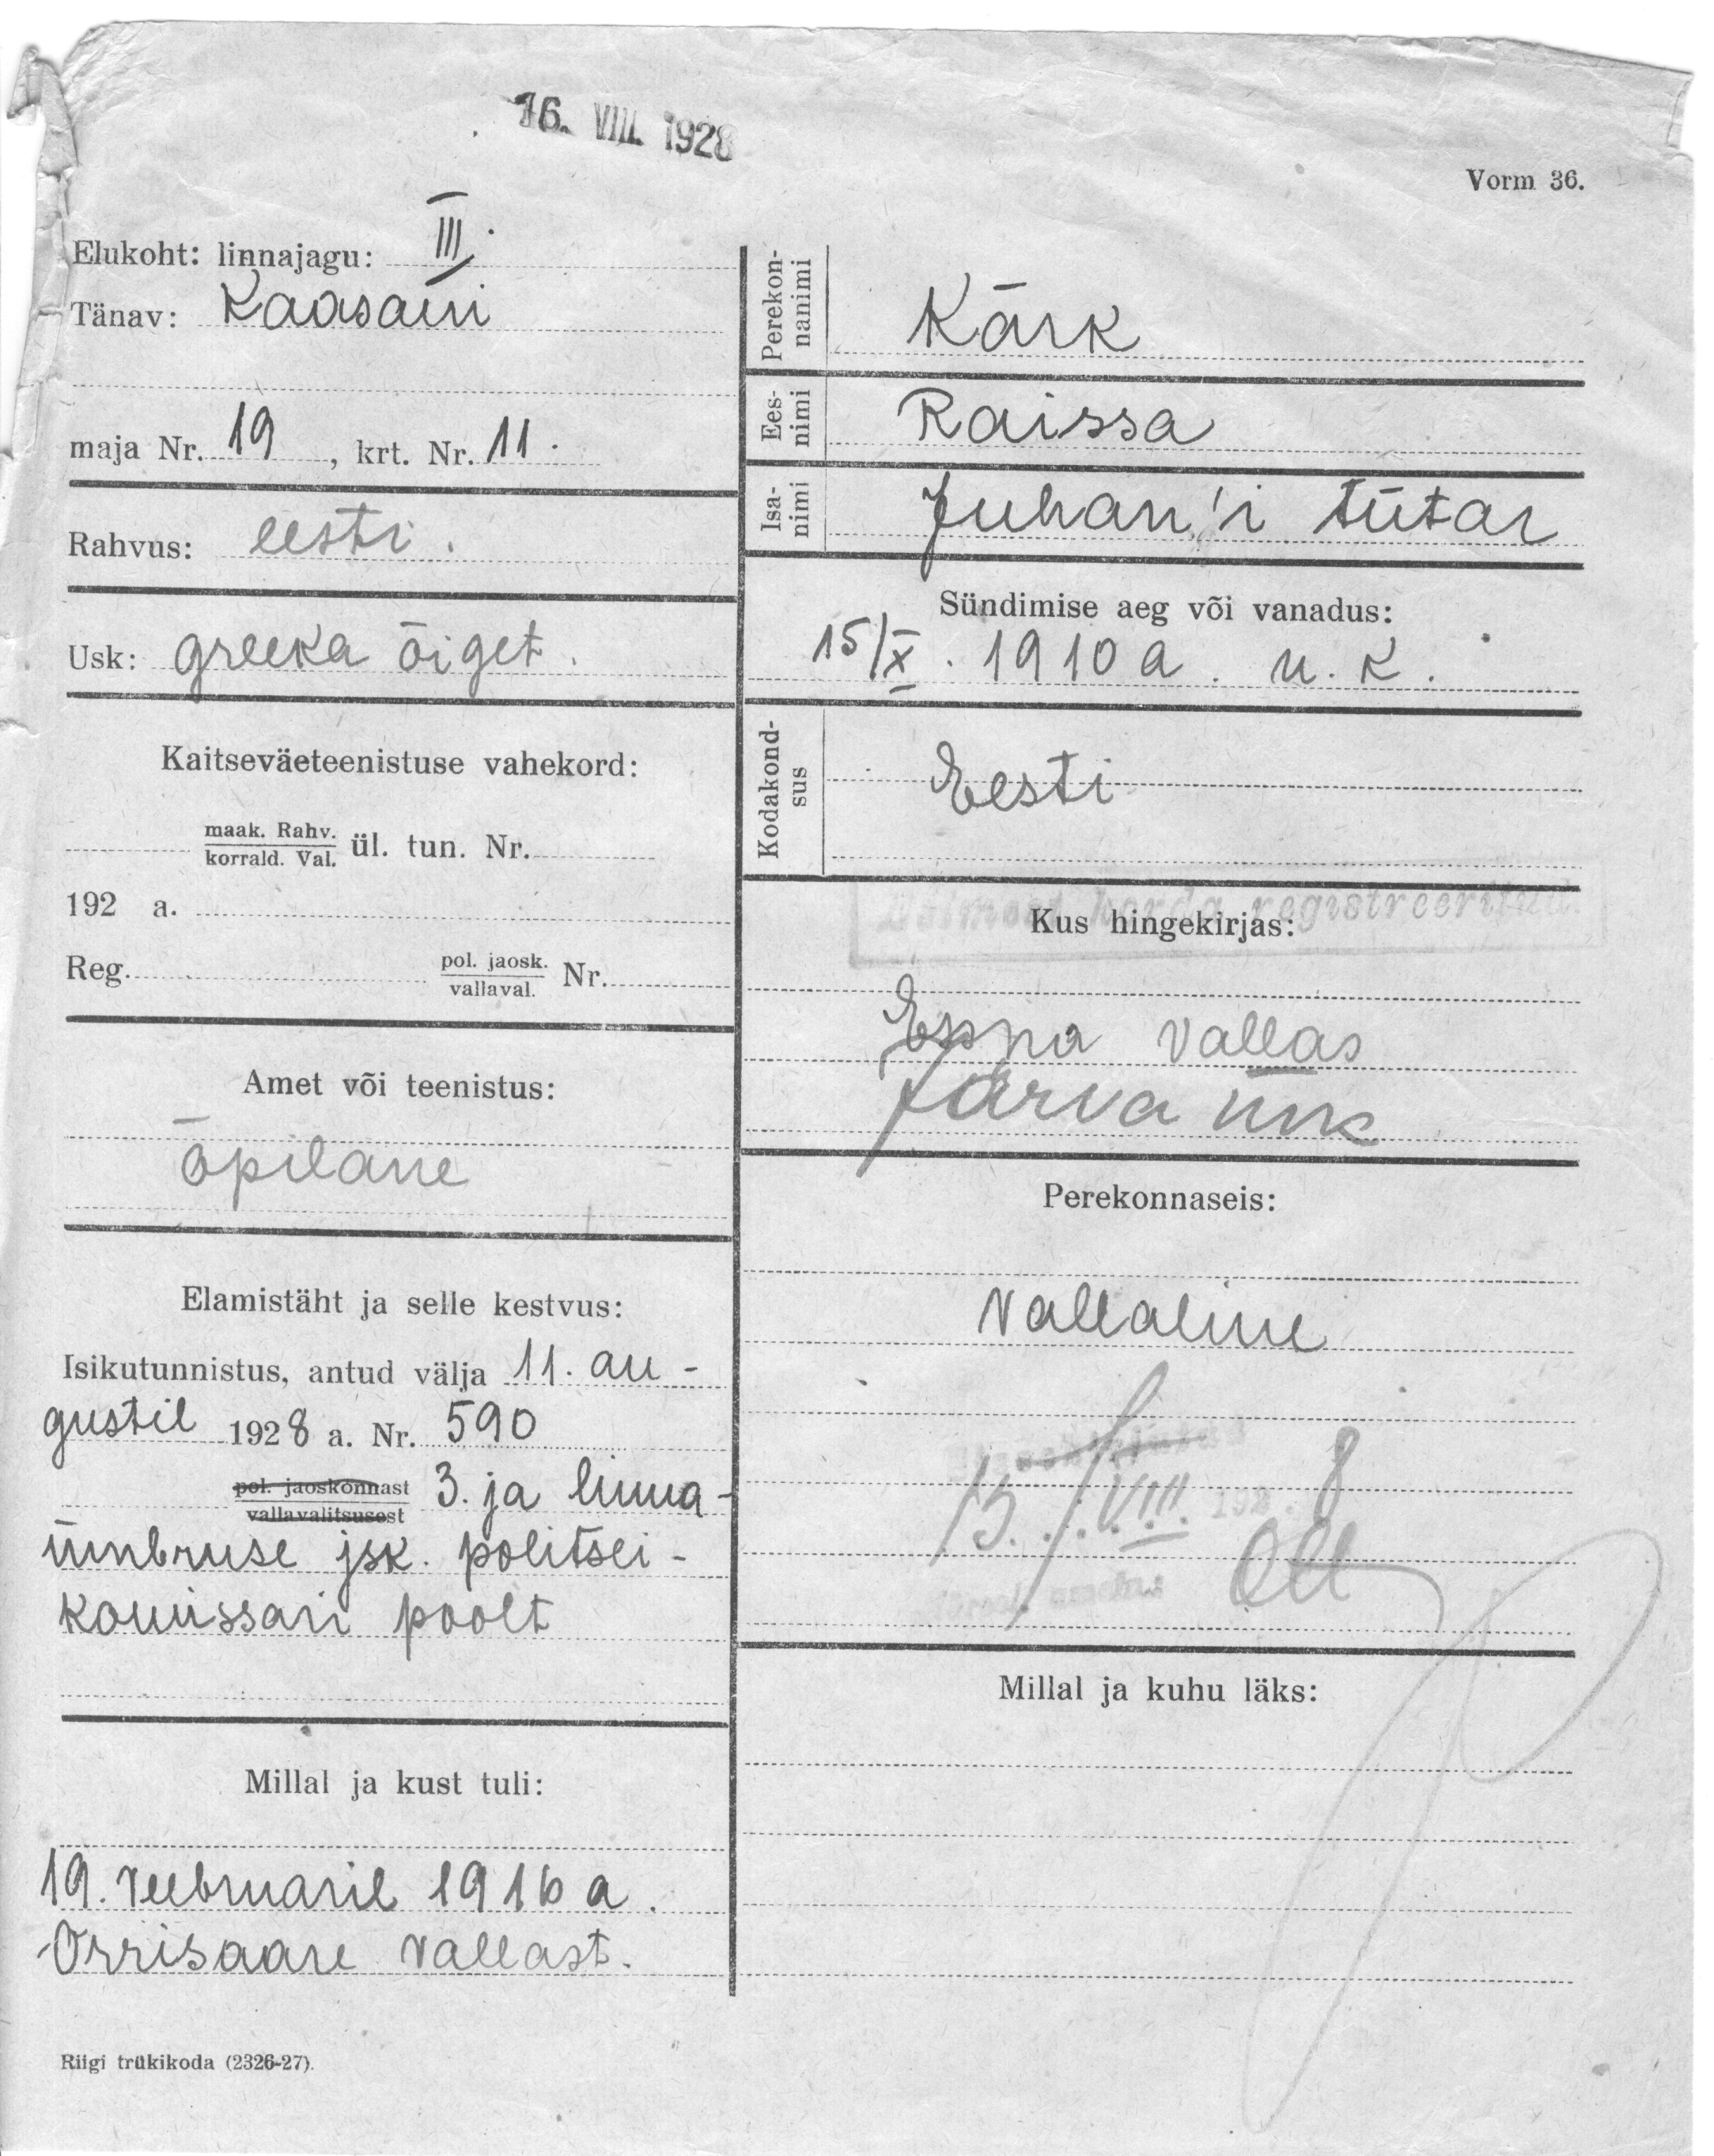 16. VIII. 1928
Vorm 36.
Elukoht: linnajagu: III.
Tänav: Kaasani
maja Nr. 19, krt. Nr. 11.
Rahvus: eesti.
Usk: greeka õiget.
Kaitseväeteenistuse vahekord:
maak. Rahv.
korrald. Val. ül. tun. Nr.
192 a.
Reg. pol. jaosk.
vallaval. Nr.
Amet või teenistus:
õpilane
Elamistäht ja selle kestvus:
Isikutunnistus, antud välja 11. au-
gustil 1928 a. Nr. 590
pol. jaoskonnast
vallavalitsusest 3. ja linna-
ümbruse jsk. politsei-
komissari poolt
Millal ja kust tuli:
19. veebruaril 1916 a.
Orrisaare vallast.
Riigi trükikoda (2326-27).
Perekon-
nanimi
Kärk
Ees-
nimi
Raissa
Isa-
nimi
Juhan'i tütar
Sündimise aeg või vanadus:
15/X. 1910 a. u. k.
Kodakond-
sus
Eesti
Esimest korda registreeritud.
Kus hingekirjas:
Vallas
Järva
Perekonnaseis:
Vallaline
15. VIII. 192.8
Millal ja kuhu läks: